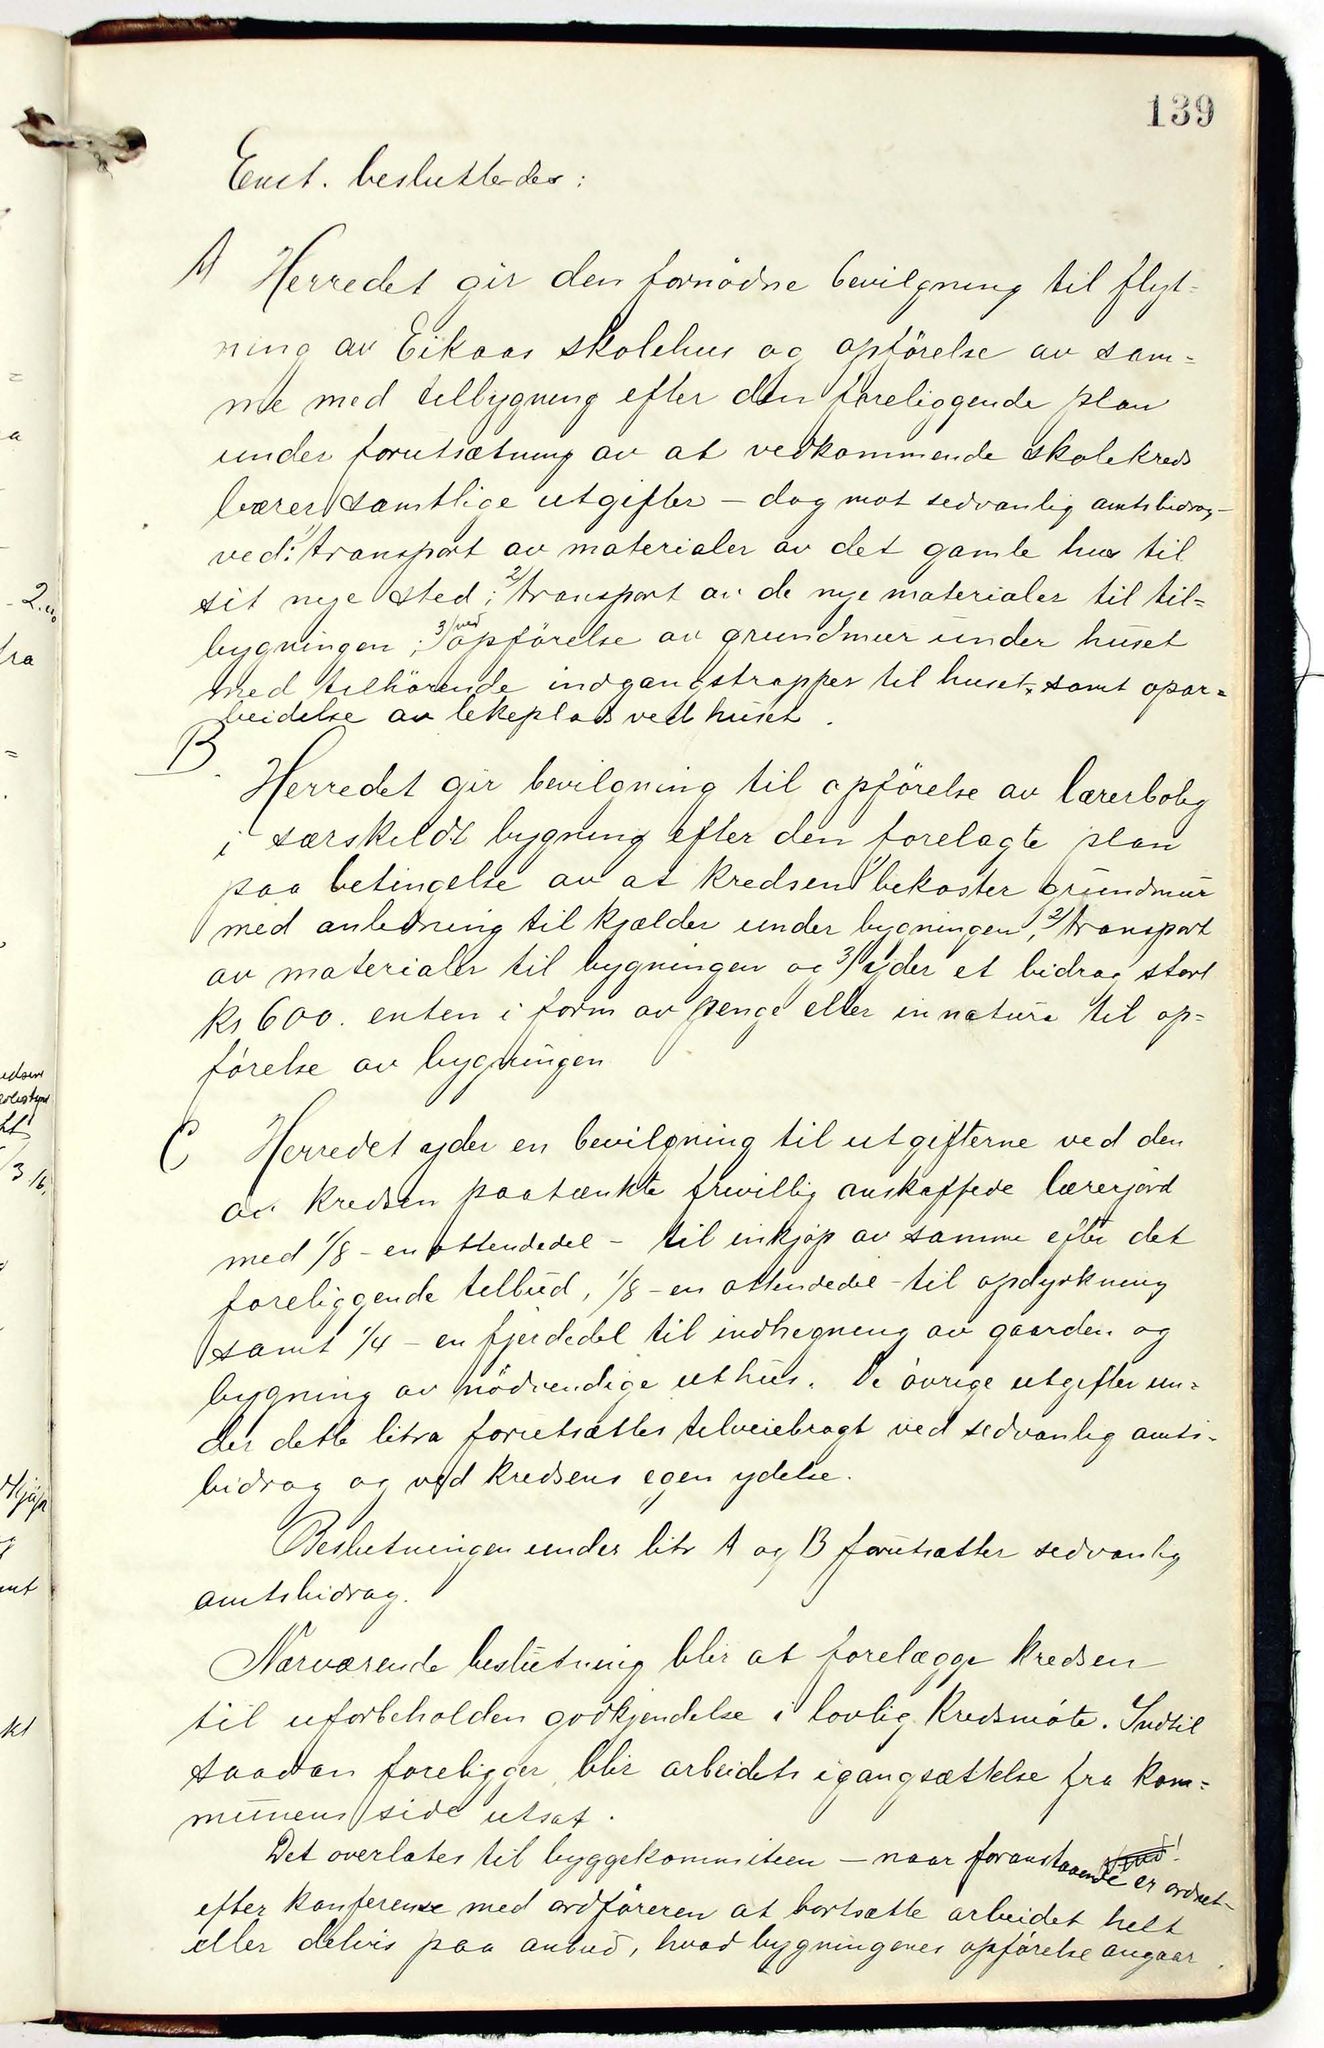 139
Enst. besluttedes:
A Herredet gir den fornødne bevilgning til flyt-
ning av Eikaas skolehus og opførelse av sam-
me med tilbygning efter den foreliggende plan
under forutsætning av at vedkommende skolekreds
bærer samtlige utgifter - dog mot sedvanlig amtsbidrag -
ved: 1/ transport av materialer av det gamle hus til
sit nye sted; 2/ transport av de nye materialer til til-
bygningen; 3/ ved opførelse av grundmur under huset
med tilhørende indgangstrapper til huset, samt opar-
beidelse av lekeplads ved huset.
B.
Herredet gir bevilgning til opførelse av lærerbolig
i særskildt bygning efter den forelagte plan
paa betingelse av at kredsen 1/ bekoster grundmur
med anledning til kjælder under bygningen, 2/ transport
av materialer til bygningen og 3/ yder et bidrag stort
kr 600. enten i form av penge eller in natura til op-
førelse av bygningen
C Herredet yder en bevilgning til utgifterne ved den
av kredsen paatænkte frivillig anskaffede lærerjord
med 1/8 - en ottendedel - til inkjøp av samme efter det
foreliggende tilbud, 1/8 - en ottendedel - til opdyrkning
samt 1/4 - en fjerdedel til indhegning av gaarden og
bygning av nødvendige uthus. De øvrige utgifter un-
der dette litra forutsættes tilveiebragt ved sedvanlig amts-
bidrag og ved kredsens egen ydelse.
Beslutningen under litr A og B forutsætter sedvanlig
amtsbidrag.
Nærværende beslutning blir at forelægge kredsen
til uforbeholden godkjendelse i lovlig kredsmøte. Indtil
saadan foreligger blir arbeidets igangsættelse fra kom-
munens side utsat.
Det overlates til byggekommiteen - naar foranstaaende er ordnet -
efter konferense med ordføreren at bortsætte arbeidet helt
eller delvis paa anbud, hvad bygningenes opførelse angaar.